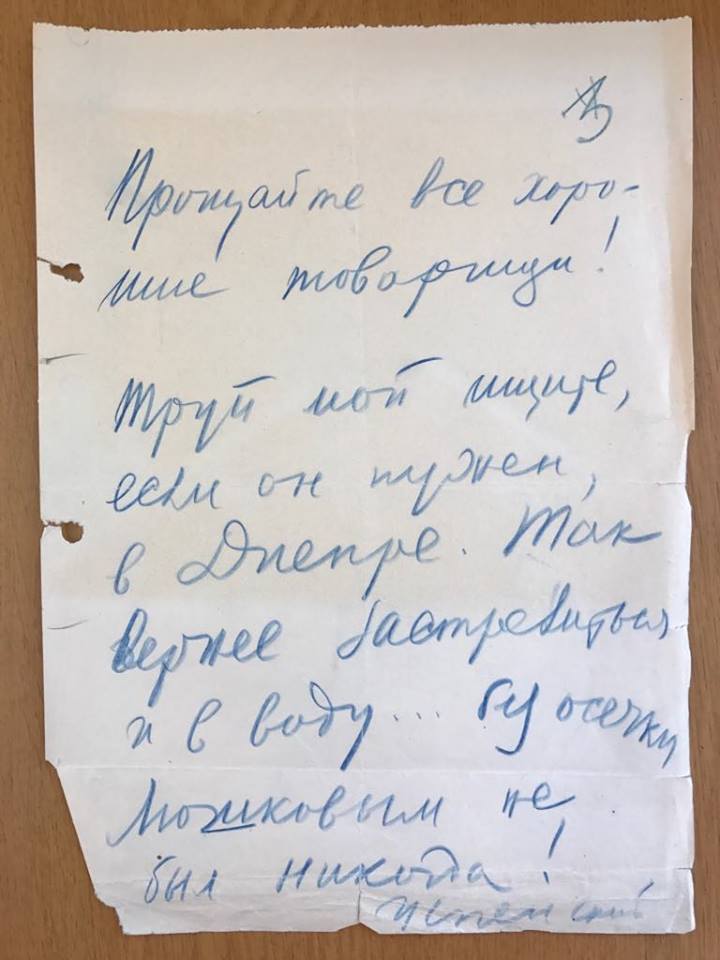 Прощайте все хоро-
шие товарищи!
Труп мой ищите,
если он нужен,
в Днепре. Так
вернее застрелиться
и в воду... без осечки
Мошковым не
был никогда!
Успенский